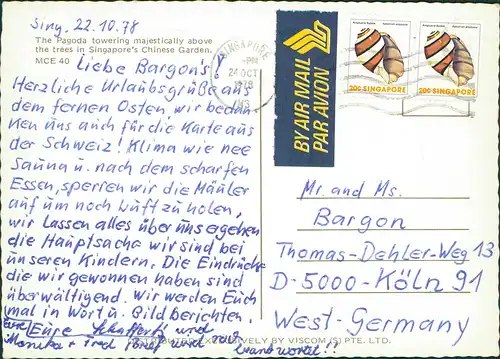 Sing, 22.10.78
The Pagoda towering majestically above
the trees in Singapore's Chinese Garden.
MCE 40
Liebe Bargon's!
Herzliche Urlaubsgrüße aus
dem fernen Osten, wir bedan
ken uns auch für die Karte aus
der Schweiz! Klima wie nee
Sauna u. nach dem scharfen
Essen, sperren wir die Mäuler
auf um noch Luft zu holen,
wir lassen alles über uns ergehen
die Hauptsache wir sind bei
unseren Kindern. Die Eindrücke
die wir gewonnen haben sind
überwältigend. Wir werden Euch
mal in Wort u. Bild berichten.
Eure
und
Monika + Fred Brief wird
beantwortet!!
DISTRIBUTED EXCLUSIVELY BY VISCOM (S) PTE. LTD.
SINGAPORE
-PM
24 OCT
1978
BY AIR MAIL
PAR AVION
20c SINGAPORE
20c SINGAPORE
Mr. and Ms.
Bargon
Thomas-Dehler-Weg 13
D-5000-Köln 91
West-Germany